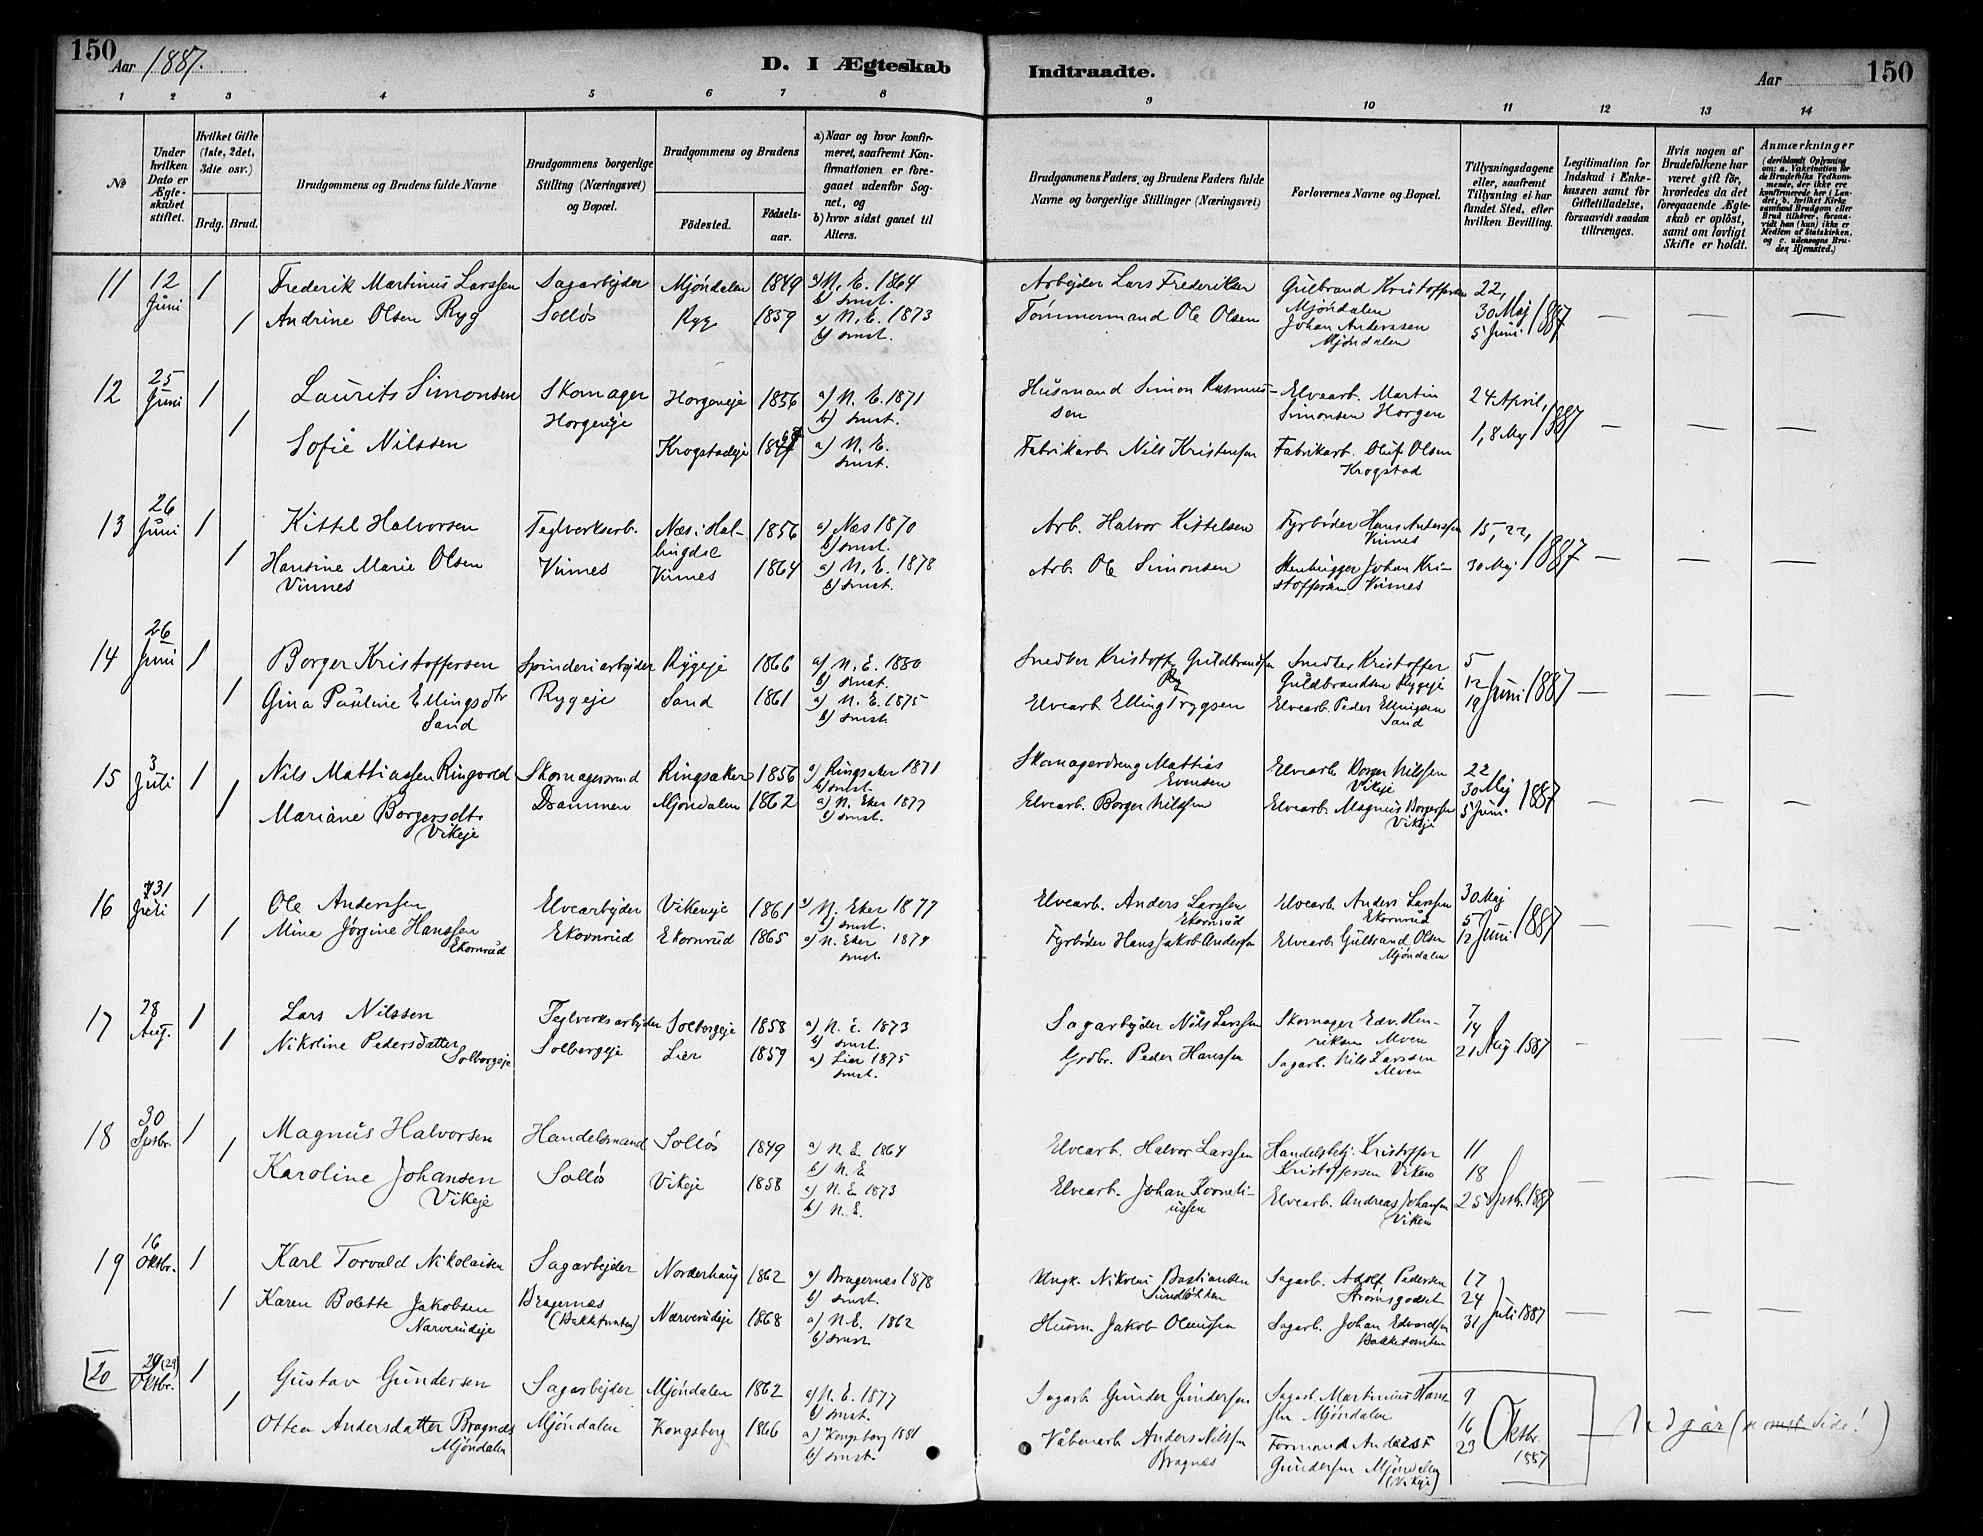 150
Aar 1887.
D. I Ægteskab
Indtraadte.
Aar
150
1 2 3 4 5 6 7 8 9 10 11 12 13 14
No
Under hvilken Dato er Ægteskabet stiftet.
Hvilket Gifte (1ste, 2det, 3die osv.)
Brdg. Brud.
Brudgommens og Brudens fulde Navne
Brudgommens borgerlige Stilling (Næringsvei) og Bopæl.
Brudgommens og Brudens
Födested.
Födselsaar.
a) Naar og hvor konfirmeret, saafremt Konfirmationen er foregaaet udenfor Sognet, og
b) hvor sidst gaaet til Alters.
Brudgommens Faders, og Brudens Faders fulde Navne og borgerlige Stillinger (Næringsvei)
Forlovernes Navne og Bopæl.
Tillysningsdagene eller, saafremt Tillysning ei har fundet Sted, efter hvilken Bevilling.
Legitimation for Indskud i Enkekassen samt for Giftetilladelse, forsaavidt saadan tiltrænges.
Hvis nogen af Brudefolkene har været gift för, hvorledes da det foregaaende Ægteskab er oplöst, samt om lovligt Skifte er holdt.
Anmærkninger
11 12 Juni 1 Frederik Martinus Larssen Sagarbejder Mjöndalen 1849 a) N. E. 1864 b) smst. Arbejder Lars Frederiksen Gulbrand Kristoffersen Mjöndalen 22,
1 Andrine Olsen Ryg Solløs Ryg 1859 a) N. E. 1873 b) smst. Tømmermand Ole Olsen Johan Anderssen Mjöndalen 30 Maj 5 Juni 1887 — — —
12 25 Juni 1 Laurits Simonsen Skomager Horgeneje Horgeneje 1856 a) N. E. 1871 b) smst. Husmand Simon Rasmussen Elvearb. Martin Simonsen Horgen 24 April,
1 Sofie Nilssen Krogstadeje a) N. E. smst. Fabrikarb. Nils Kristensen Fabrikarb. Oluf Olsen Krogstad 1, 8 Maj 1887 — — —
13 26 Juni 1 Kittel Halvorsen Teglverksarb. Næs i Hallingdal 1856 a) Næs 1870 b) smst. Arb. Halvor Kittelsen Fyrbøder Hans Anderssen Vinnes 15, 22,
1 Hansine Marie Olsen Vinnes Vinnes Vinnes 1864 a) N. E. 1878 b) smst. Arb. Ole Simonsen Stenhugger Johan Kristoffersen Vinnes 30 Maj 1887 — — —
14 26 Juni 1 Borger Kristoffersen Spinderiarbejder Rygeje 1866 a) N. E. 1880 b) smst. Snedker Kristoffer Guldbrandsen Ryg Snedker Kristoffer Guldbrandsen Rygeje 5
1 Gina Pauline Ellingsdtr Sand Rygeje Sand 1861 a) N. E. 1875 b) smst. Elvearb. Elling Trygsen Elvearb. Peder Ellingsen Sand 12 19 Juni 1887 — — —
15 3 Juli 1 Nils Mattiassen Ringvold Skomagersvend Ringsaker 1856 a) Ringsaker 1871 b) smst. Skomagerdreng Mattias Evensen Elvearb. Borger Nilssen Vikeje 22
1 Mariane Borgersdtr Vikeje Drammen Mjöndalen 1862 a) N. Eker 1877 b) smst. Elvearb. Borger Nilssen Elvearb. Magnus Borgersen Vikeje 30 Maj 5 Juni 1887 — — —
16 31 Juli 1 Ole Anderssen Elvearbejder Vikeneje 1861 a) N. Eker 1877 b) smst. Elvearb. Anders Larssen Ekornrud Elvearb. Anders Larssen Ekornrud 30 Maj
1 Mina Jørgine Hanssen Ekornrud Ekornrud Ekornrud 1865 a) N. Eker 1879 smst. Fyrbøder Hans Jakob Andersen Elvearb. Gulbrand Olsen Mjöndalen 5 12 Juni 1887 — — —
17 28 Aug. 1 Lars Nilssen Teglverksarbejder Solbergeje 1858 a) N. E. 1873 b) smst. Sagarbejder Nils Larssen Skomager Edv. Henriksen Alven 7
1 Nikoline Pedersdatter Solbergeje Solbergeje Lier 1859 a) Lier 1875 smst. Grdbr. Peder Hanssen Sagarb. Nils Larssen Alven 14 21 Aug. 1887 — — —
18 30 Sptbr. 1 Magnus Halvorsen Handelsmand Solløs 1849 a) N. E. 1864 b) N. E. Elvearb. Halvor Larssen Handelsbtj. Kristoffer Kristoffersen Viken 11
1 Karoline Johansen Vikeje Solløs Vikeje 1858 a) N. E. 1873 b) N. E. Elvearb. Johan Korneliussen Elvearb. Andreas Johansen Viken 18 25 Sptbr. 1887 — — —
19 16 Oktbr. 1 Karl Torvald Nikolaisen Sagarbejder Norderhaug 1862 a) Bragernæs 1878 b) smst. Ungk. Nikolai Bastiansen Sundløkken Sagarb. Adolf Pedersen Strømsgodset 17
1 Karen Bolette Jakobsen Narverudeje Bragernæs (Bakketomten) Narverudeje 1868 a) N. E. 1862 b) smst. Husm. Jakob Olaussen Sagarb. Johan Edvardsen Bakketomten 24 31 Juli 1887 — — —
20 29 (29) Oktbr. 1 Gustav Gundersen Sagarbejder Mjöndalen 1862 a) N. E. 1877 b) smst. Sagarb. Gunder Gundersen Sagarb. Martinius Hanssen Mjöndalen 9
1 Ottea Andersdatter Bragnæs Mjöndalen Mjöndalen Kongsberg 1866 a) Kongsberg 1881 b) smst. Våbenarb. Anders Nilssen Bragnæs Formand Anders Gundersen Mjöndalen (Vikeje) 16 23 Oktbr. 1887 Udgår (næste Side!)